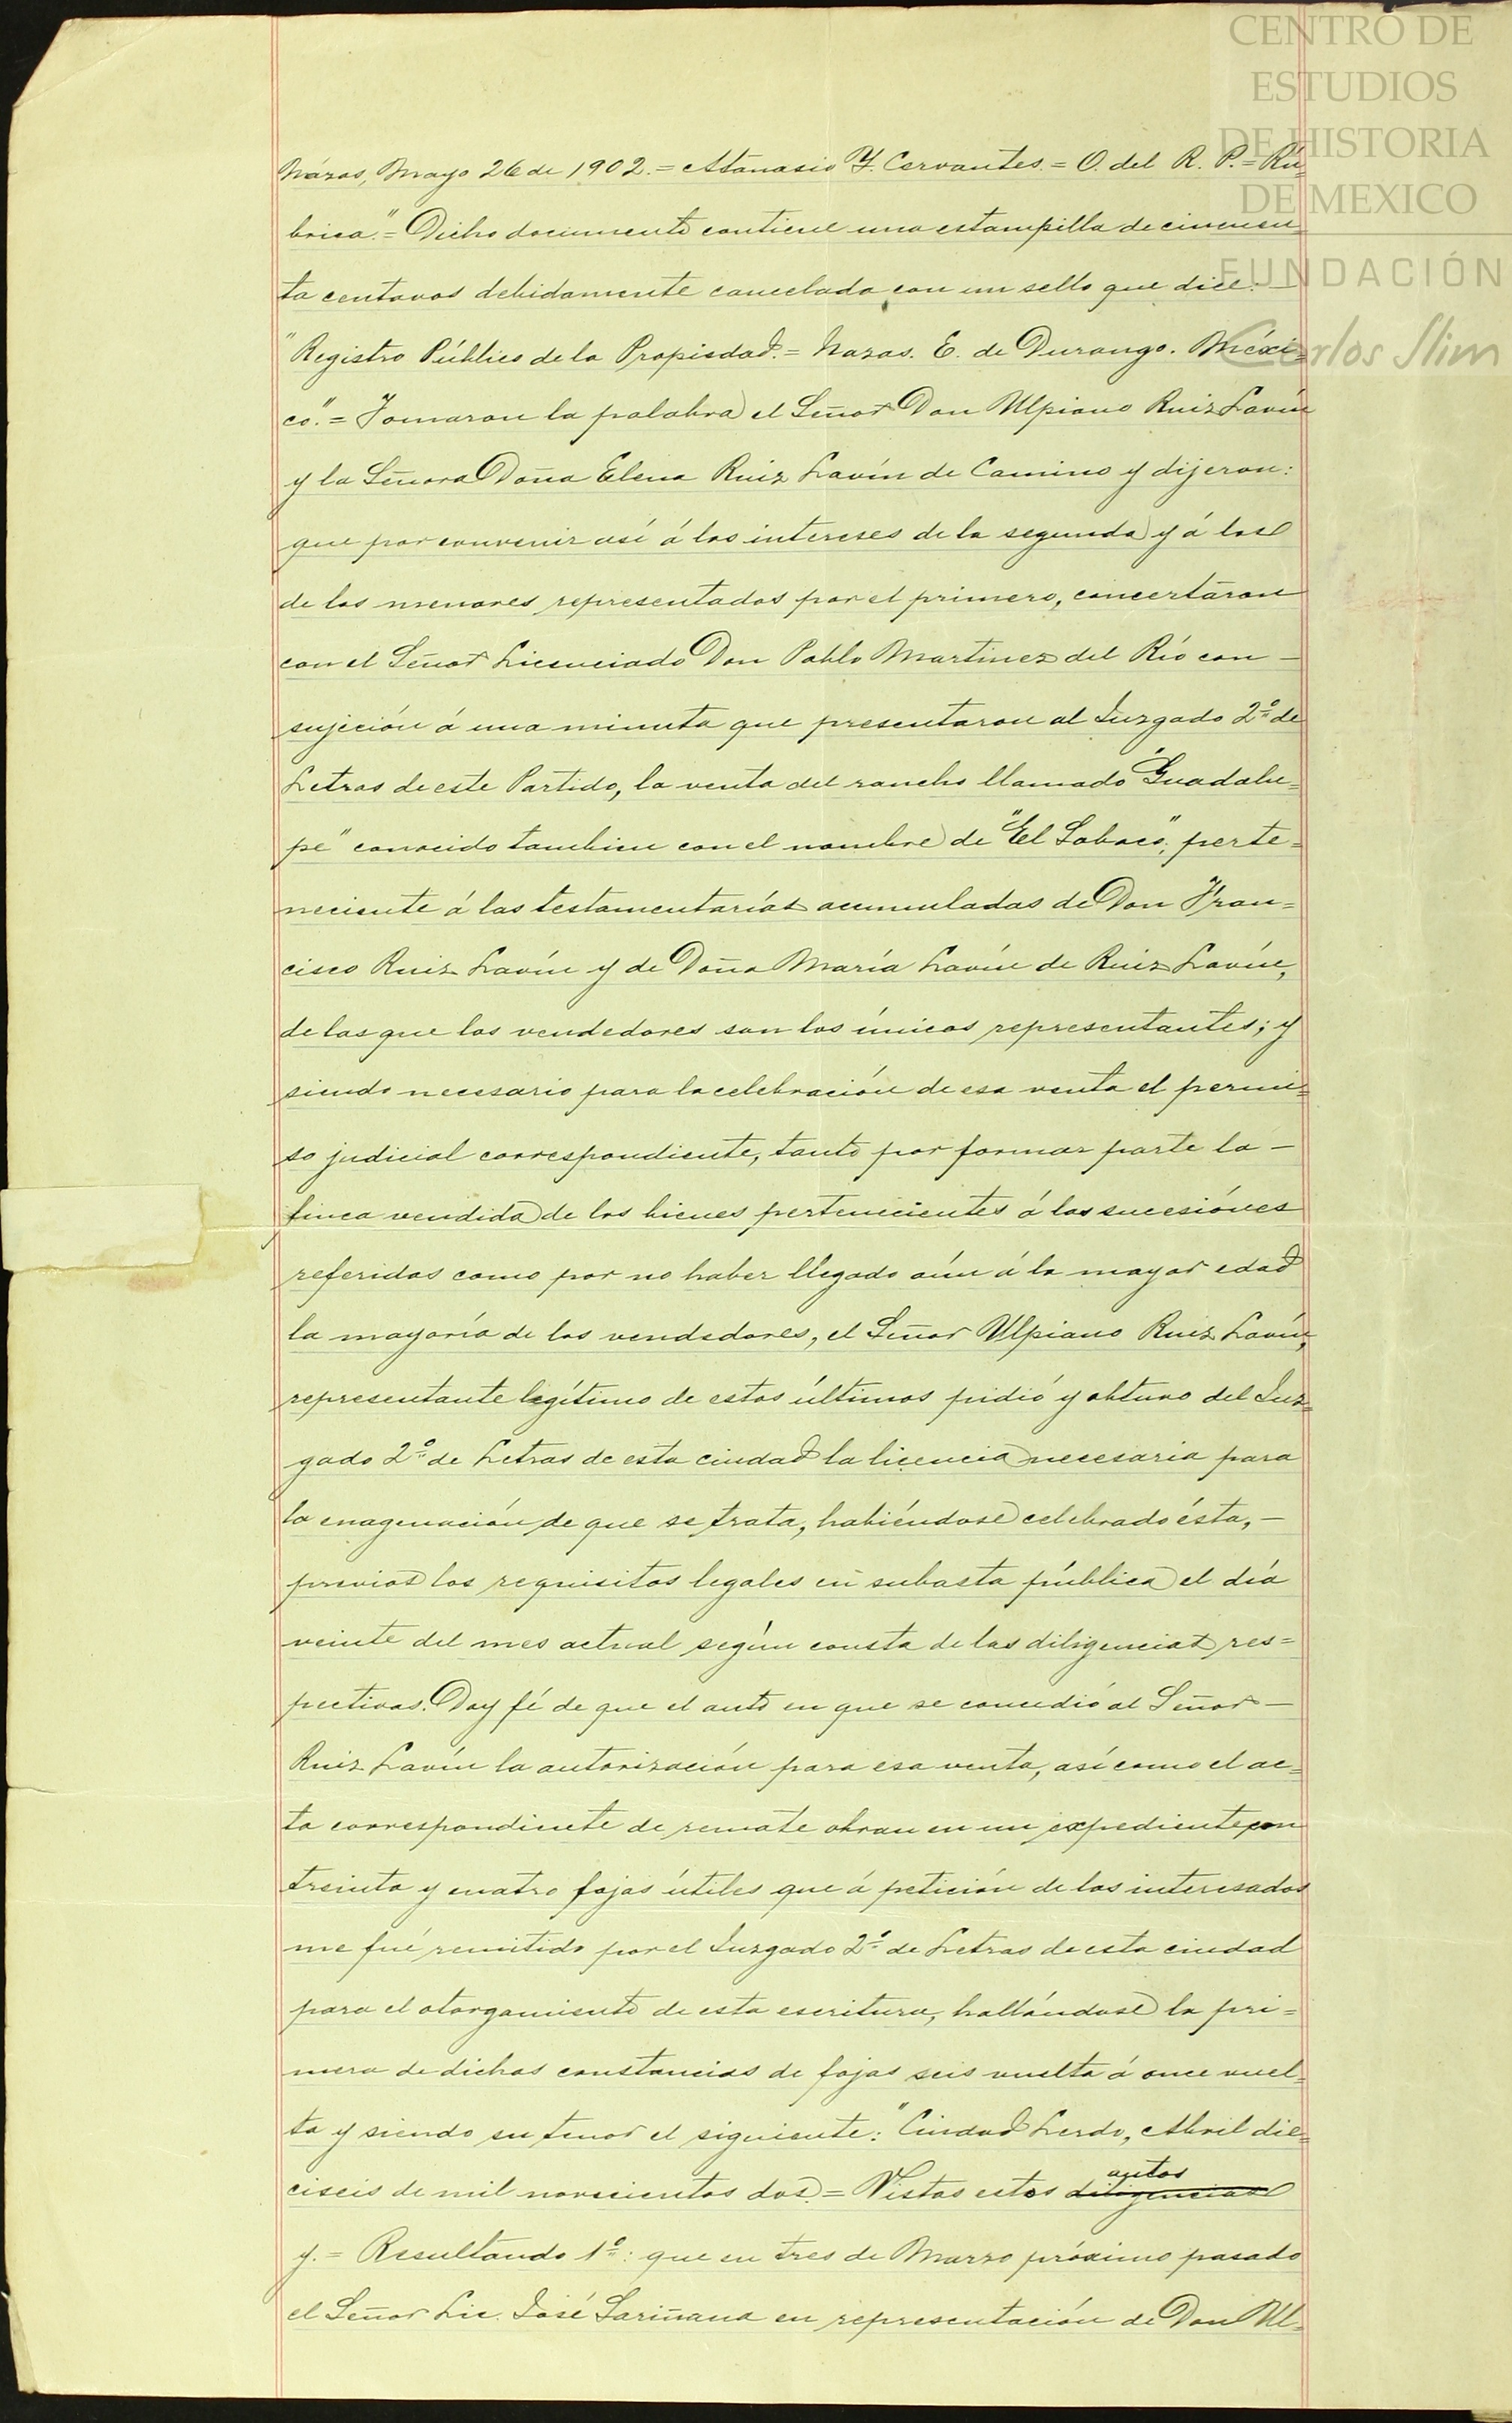 CENTRO DE
ESTUDIOS
DE HISTORIA
DE MEXICO
FUNDACIÓN
Carlos Slim
Názas, Mayo 26 de 1902. = Atanasio Y. Cervantes. = O. del R. P. = Rú-
brica." = Dicho documento contiene una estampilla de cincuen-
ta centavos debidamente cancelada con un sello que dice: —
"Registro Público de la Propiedad. = Nazas. E. de Durango. Méxi=
co." = Tomaron la palabra el Señor Don Ulpiano Ruiz Lavín
y la Señora Doña Elena Ruiz Lavín de Camino y dijeron:
que por convenir así á los intereses de la segunda y á los
de los menores representados por el primero, concertáron
con el Señor Licenciado Don Pablo Martinez del Río con —
sujeción á una minuta que presentaron al Juzgado 2º de
Letras de este Partido, la venta del rancho llamado "Guadalu=
pe" conocido tambien con el nombre de "El Sobaco", perte=
neciente á las testamentarías acumuladas de Don Fran=
cisco Ruiz Lavín y de Doña María Lavín de Ruiz Lavín,
de las que los vendedores son los únicos representantes; y
siendo necesario para la celebración de esa venta el permi=
so judicial correspondiente, tanto por formar parte la —
finca vendida de los bienes pertenecientes á las sucesiónes
referidas como por no haber llegado aún á la mayor edad
la mayoría de los vendedores, el Señor Ulpiano Ruiz Lavín,
representante legítimo de estos últimos pidió y obtuvo del Juz=
gado 2º de Letras de esta ciudad la licencia necesaria para
la enagenación de que se trata, habiéndose celebrado ésta, —
previos los requisitos legales en subasta pública el día
veinte del mes actual según consta de las diligencias res=
pectivas. Doy fé de que el auto en que se concedió al Señor —
Ruiz Lavín la autorización para esa venta, así como el ac=
ta correspondinete de remate obran en un expediente con
treinta y cuatro fojas útiles que á petición de los interesados
me fué remitido por el Juzgado 2º de Letras de esta ciudad
para el otorgamiento de esta escritura, hallándose la pri=
mera de dichas constancias de fojas seis vuelta á once vuel=
ta y siendo su tenor el siguiente: "Ciudad Lerdo, Abril die=
ciseis de mil novecientos dos. = Vistos estos diligencias autos
y. = Resultando 1º: que en tres de Marzo próximo pasado
el Señor Lic. José Sariñana en representación de Don Ul-